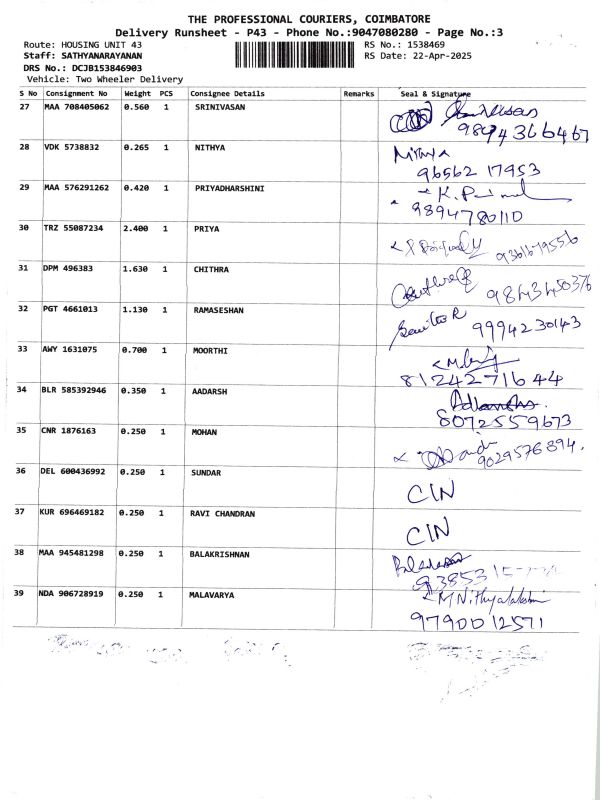 THE PROFESSIONAL COURIERS, COIMBATORE
Delivery Runsheet - P43 - Phone No.:9047080280 - Page No.:3
Route: HOUSING UNIT 43 RS No.: 1538469
Staff: SATHYANARAYANAN RS Date: 22-Apr-2025
DRS No.: DCJB153846903
Vehicle: Two Wheeler Delivery
S No Consignment No Weight PCS Consignee Details Remarks Seal & Signature
27 MAA 708405062 0.560 1 SRINIVASAN
9894366467
28 VDK 5738832 0.265 1 NITHYA Nithya
96562 17953
29 MAA 576291262 0.420 1 PRIYADHARSHINI
9894780110
30 TRZ 55087234 2.400 1 PRIYA 9361679556
31 DPM 496383 1.630 1 CHITHRA
32 PGT 4661013 1.130 1 RAMASESHAN 9994230143
33 AWY 1631075 0.700 1 MOORTHI
8124271644
34 BLR 585392946 0.350 1 AADARSH
8072559673
35 CNR 1876163 0.250 1 MOHAN
9029576894.
36 DEL 600436992 0.250 1 SUNDAR CIN
37 KUR 696469182 0.250 1 RAVI CHANDRAN CIN
38 MAA 945481298 0.250 1 BALAKRISHNAN
39 NDA 906728919 0.250 1 MALAVARYA M Nithyalakshmi
9790012571